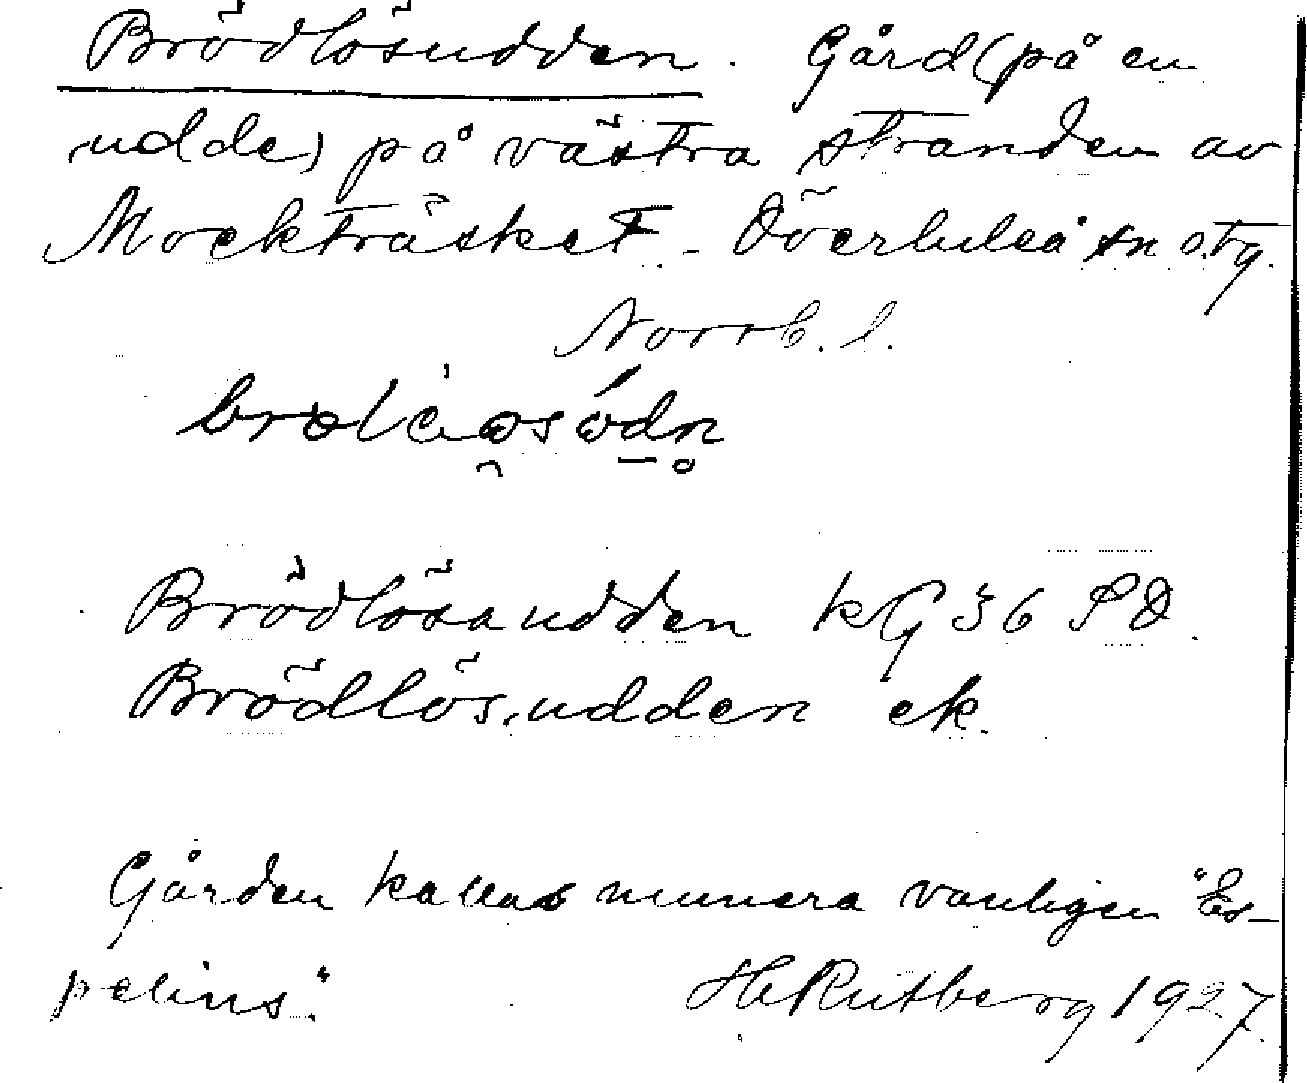 Brödlösudden. Gård (på en
udde) på västra stranden av
Mockträsket. Överluleå sn o. tg.
Norrb. l.
Brödlösaudden kG 36 SO.
Brödlös.udden ek.
Gården kallas numera vanligen "Es-
pelins". H Rutberg 1927.